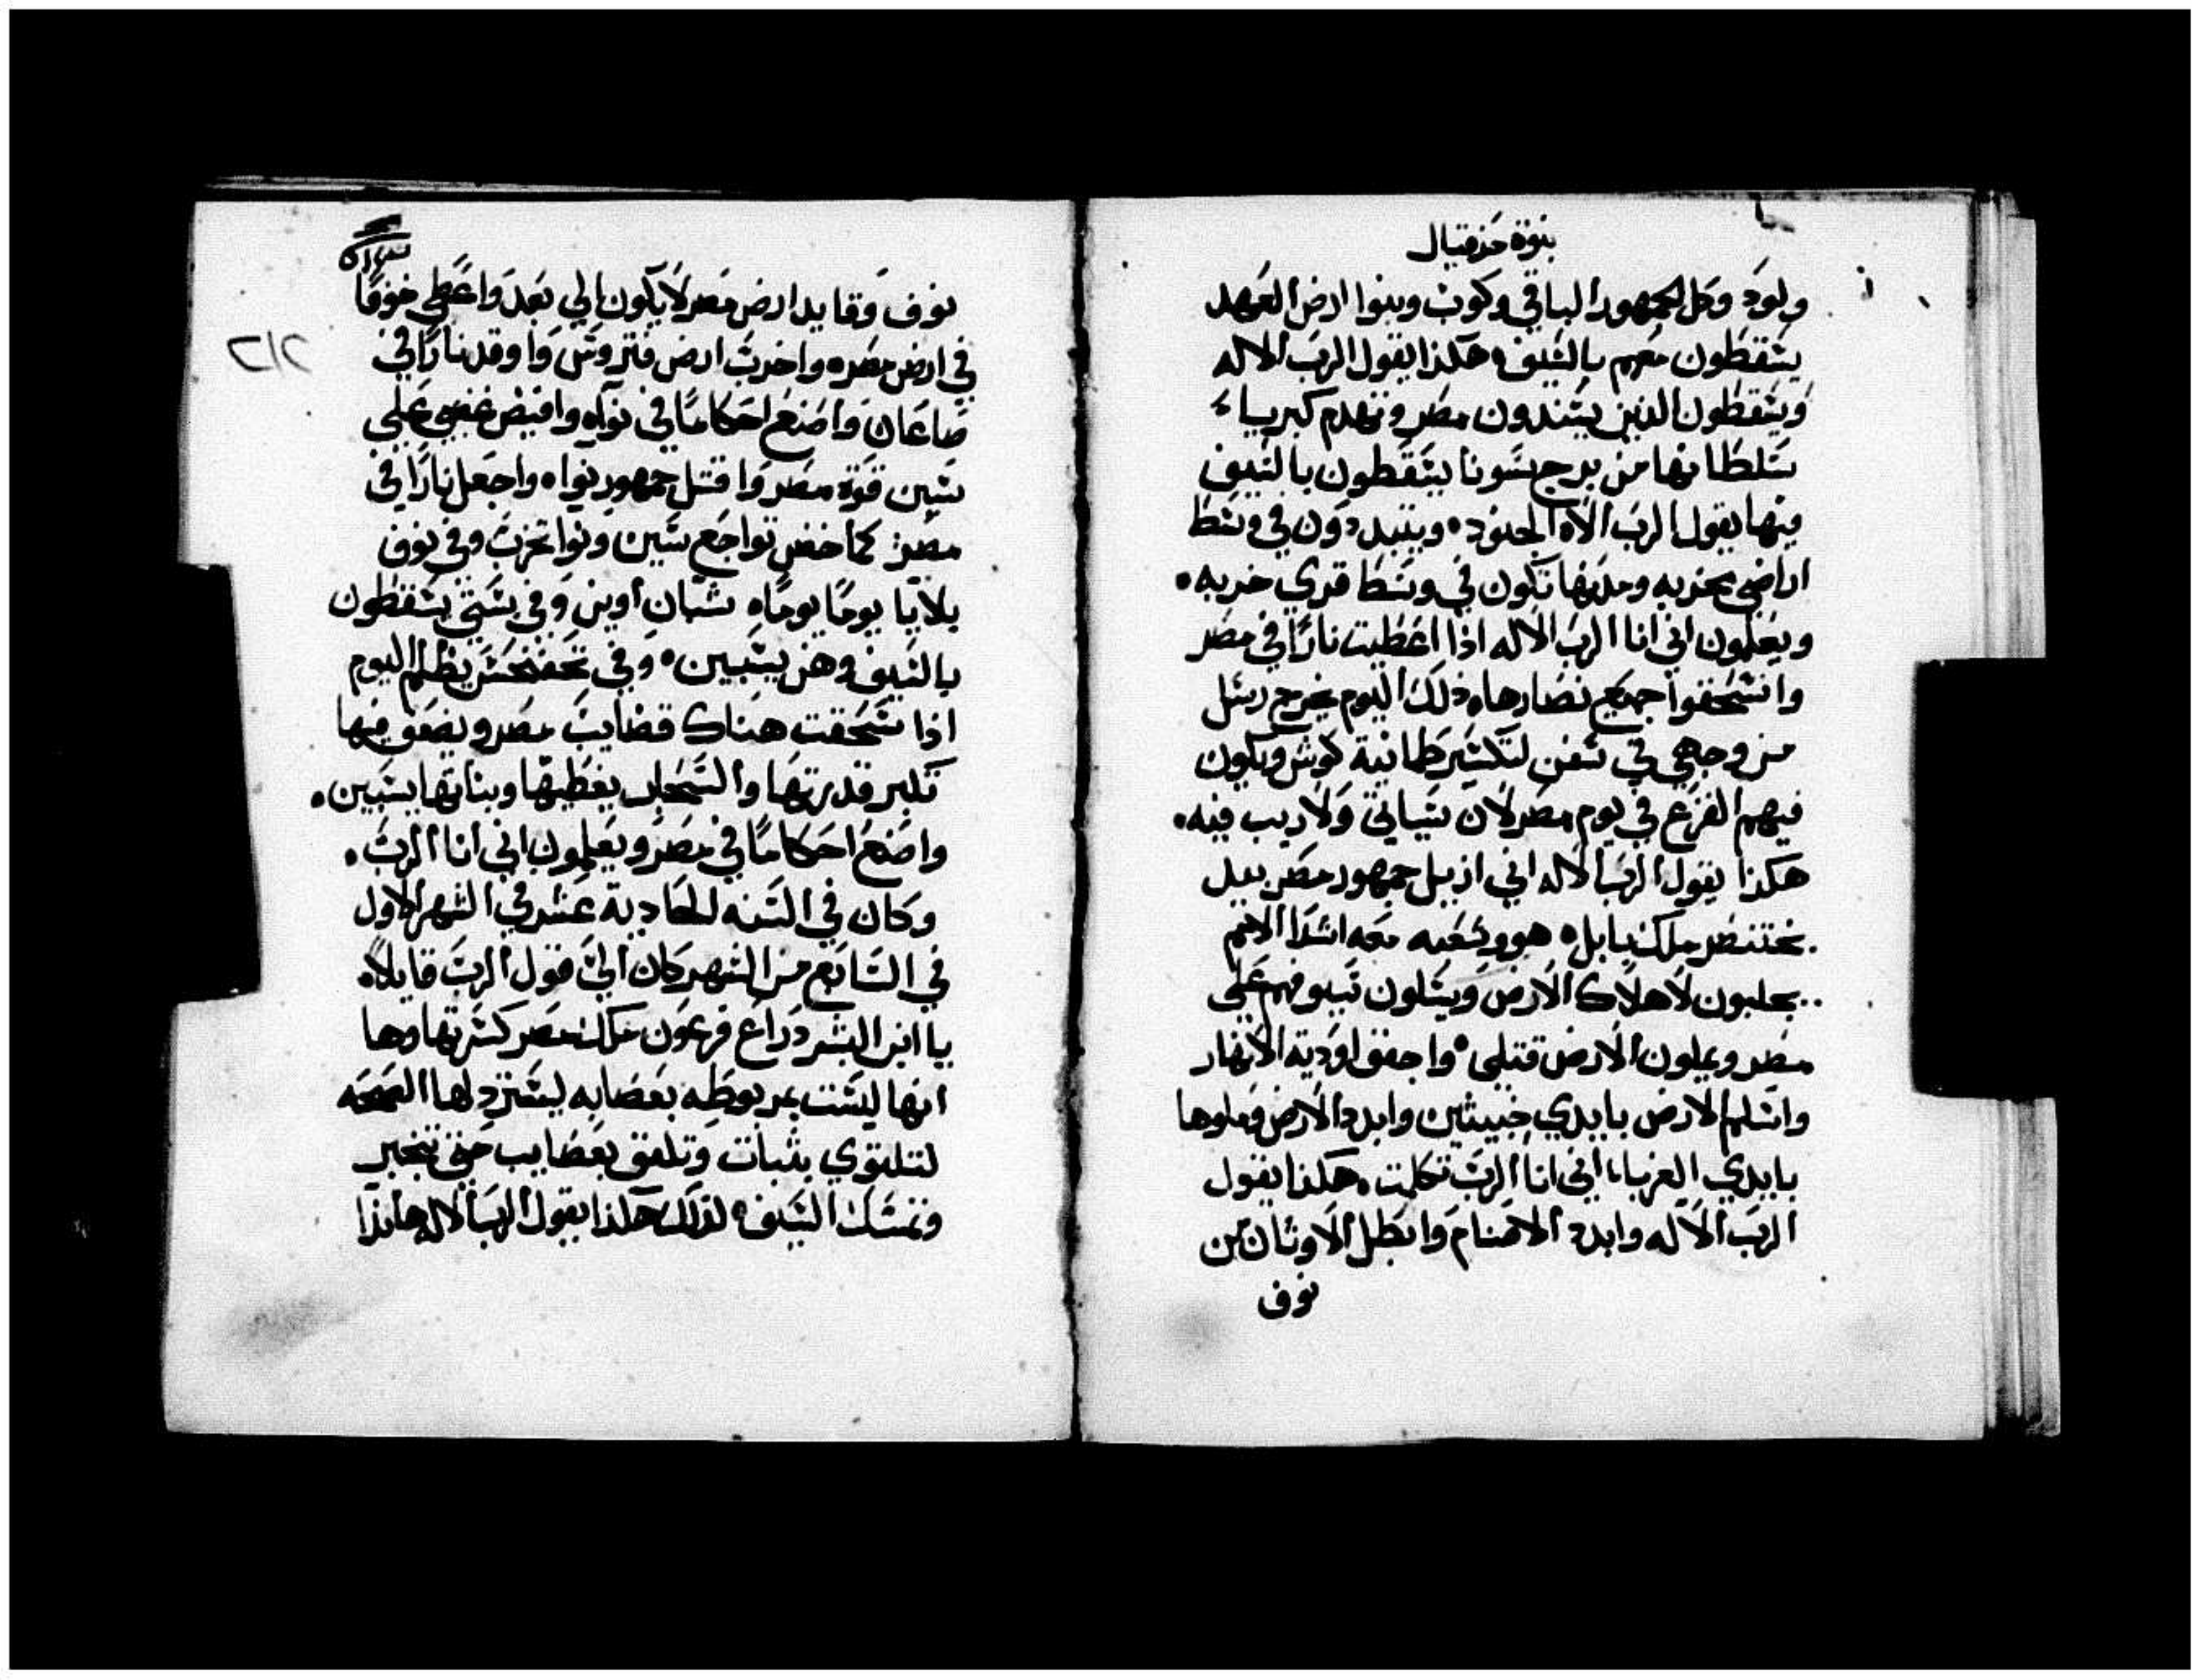 نبوة حزقيال
ولود وكل الجمهور الباقي وكوب وبنوا ارض العهد
يسقطون معهم بالسيف ٠ هكذا يقول الرب الاله
ويسقطون الذين يسندون مصر وتهدم كبرياء
سلطانها من برج سونا يسقطون بالسيف
فيها يقول الرب الاه الجنود ٠ ويتبددون في وسط
اراضي مخربه ومدنها تكون في وسط قري خربه ٠
ويعلمون اني انا الرب الاله اذا اعطيت نارًا في مصر
وانسحقوا جميع نصارها ٠ ذلك اليوم يخرج رسل
من وجهي في سفن لتكسير طمانية كوش ويكون
فيهم الفزع في يوم مصر لان سياتي ولا ريب فيه ٠
هكذا يقول الرب الاله اني ازيل جمهور مصر بيد
بختنصر ملك بابل ٠ هو وشعبه معه اشدا الامم
يجلبون لاهلاك الارض ويسلون سيوفهم علي
مصر ويملون الارض قتلي ٠ واجفف اودية الانهار
واسلم الارض بايدي خبيثين وابدد الارض وملوها
بايدي الغربا ٠ اني انا الرب تكلمت ٠ هكذا يقول
الرب الاله وابدد الاصنام وابطل الاوثان من
نوف
نوف وقايد ارض مصر لا يكون الي بعد واعطي خوفًا
في ارض مصر ٠ واخرب ارض فتروس واوقد نارًا في
صاعان واصنع احكامًا في نواه وافيض غضبي علي
سين قوة مصر واقتل جمهور نواه واجعل نارًا في
مصر كما خض تواجع سين ونوا تخرب وفي نوف
بلايا يومًا يومًا ٠ شبان اوين وفي بستي يسقطون
بالسيف وهن يستبين ٠ وفي تحفنحس يظلم اليوم
اذا سحقت هناك قضايب مصر ويضعف فيها
تكبر قدرتها والسحاب يغطيها وبناتها يسبين ٠
واصنع احكامًا في مصر ويعلمون اني انا الرب ٠
وكان في السنه الحادية عشر في الشهر الاول
في السابع من الشهر كان الي قول الرب قايلاً ٠
يا ابن البشر دراع فرعون ملك مصر كسرتها وها
انها ليست بمربوطه بعصابه ليسترد لها الصحه
لتلتوي بثبات وتلفق بعصايب حتي تنجبر
وتمسك السيف ٠ لذلك هكذا يقول الرب الاله هانذا